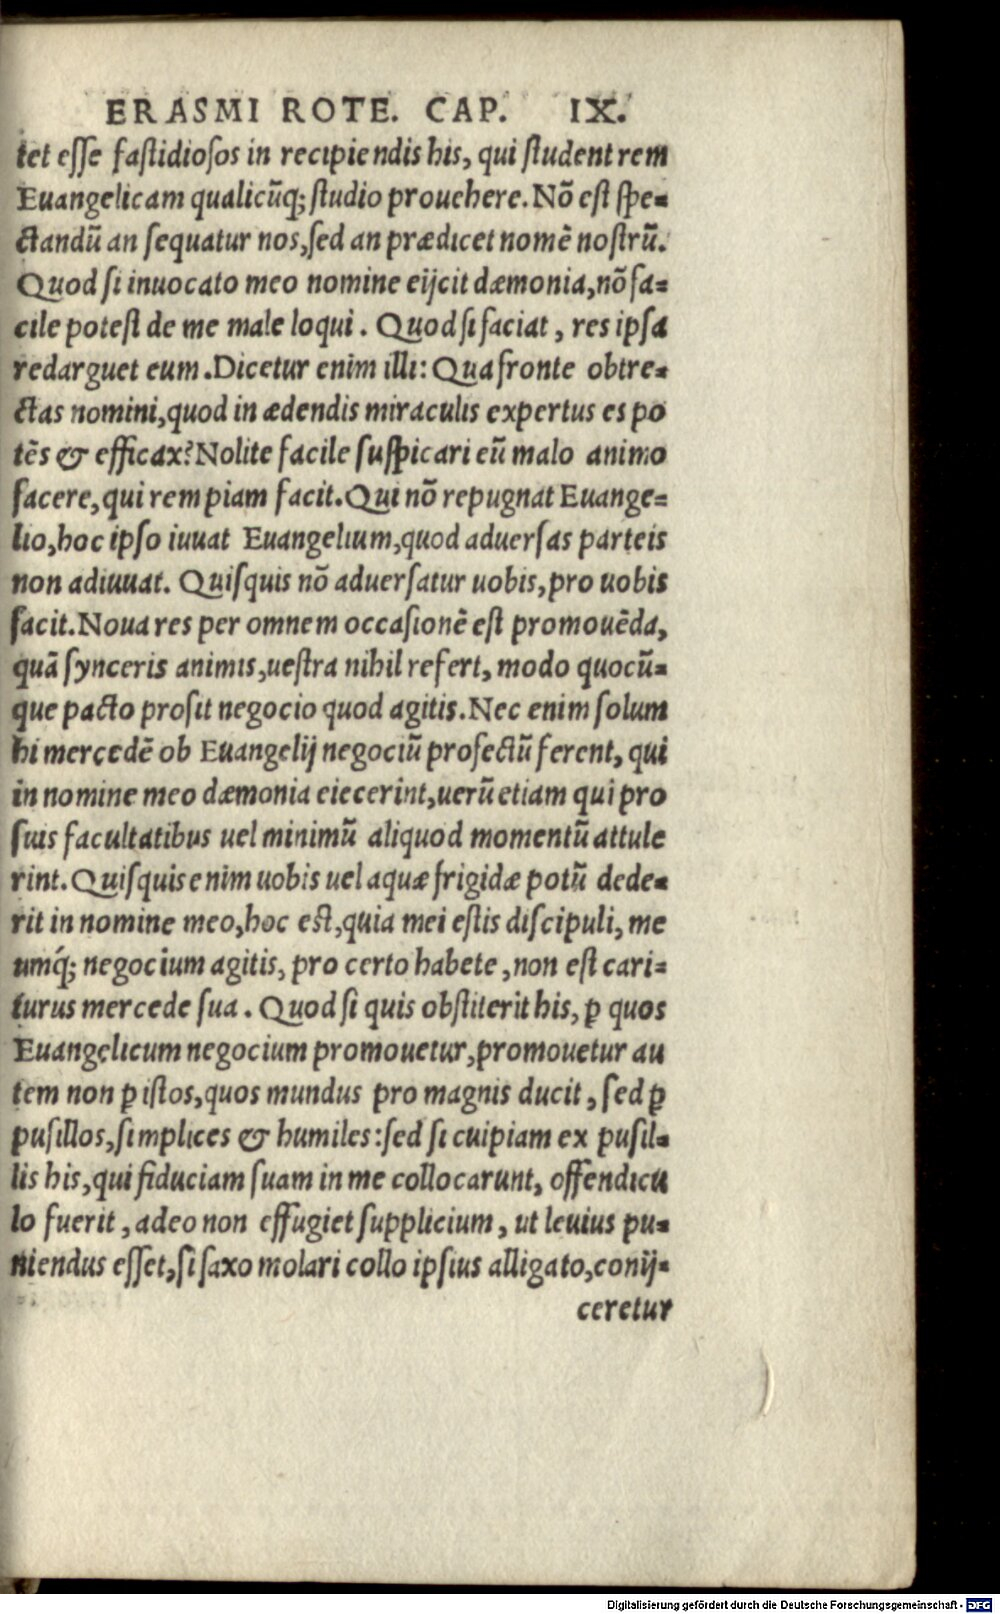 ERASMI ROTE. CAP. IX.
tet esse fastidiosos in recipiendis his, qui student rem
Euangelicam qualicũq; studio prouehere. Nõ est spe=
ctandũ an sequatur nos, sed an prædicet nomẽ nostrũ.
Quod si inuocato meo nomine eijcit dæmonia, nõ fa=
cile potest de me male loqui. Quod si faciat, res ipsa
redarguet eum. Dicetur enim illi: Qua fronte obtre=
ctas nomini, quod in ædendis miraculis expertus es po
tẽs & efficax? Nolite facile suspicari eũ malo animo
facere, qui rem piam facit. Qui nõ repugnat Euange=
lio, hoc ipso iuuat Euangelium, quod aduersas parteis
non adiuuat. Quisquis nõ aduersatur uobis, pro uobis
facit. Noua res per omnem occasionẽ est promouẽda,
quã synceris animis, uestra nihil refert, modo quocũ=
que pacto prosit negocio quod agitis. Nec enim solum
hi mercedẽ ob Euangelij negociũ profectũ ferent, qui
in nomine meo dæmonia eiecerint, uerũ etiam qui pro
suis facultatibus uel minimũ aliquod momentũ attule
rint. Quisquis enim uobis uel aquæ frigidæ potũ dede=
rit in nomine meo, hoc est, quia mei estis discipuli, me
umq́; negocium agitis, pro certo habete, non est cari=
turus mercede sua. Quod si quis obstiterit his, ꝑ quos
Euangelicum negocium promouetur, promouetur au
tem non ꝑ istos, quos mundus pro magnis ducit, sed ꝑ
pusillos, simplices & humiles: sed si cuipiam ex pusil=
lis his, qui fiduciam suam in me collocarunt, offendicu
lo fuerit, adeo non effugiet supplicium, ut leuius pu=
niendus esset, si saxo molari collo ipsius alligato, conij=
ceretur
Digitalisierung gefördert durch die Deutsche Forschungsgemeinschaft - DFG